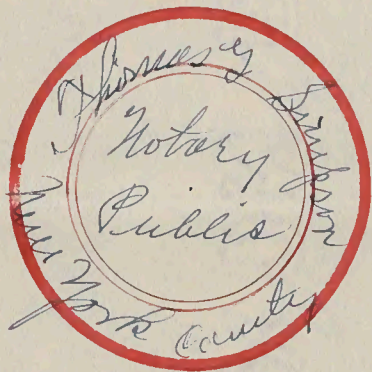 Thomas G Simpson
Notary
Public
New York County